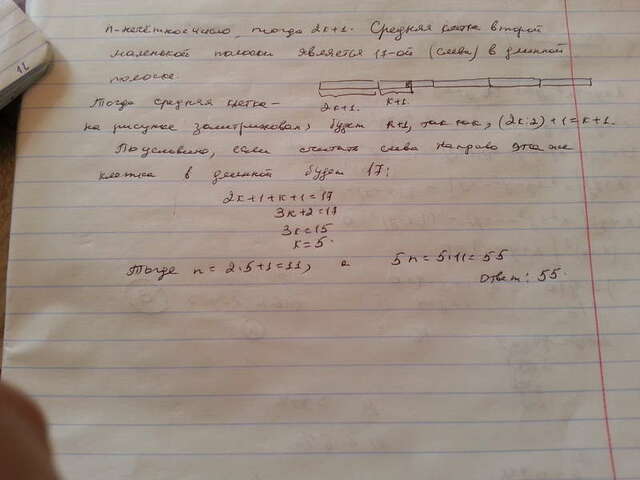 12
n-нечётное число, тогда 2k+1. Средняя клетка второй
маленькой полоски является 17-ой (слева) в длинной
полоске.
2k+1. k+1.
Тогда средняя клетка-
на рисунке заштрихован, будет k+1, так как, (2k:2)+1=k+1.
По условию, если считать слева направо эта же
клетка в длинной будет 17:
2k+1+k+1=17
3k+2=17
3k=15
k=5.
Тогда n=2·5+1=11, а 5n=5·11=55
Ответ: 55.